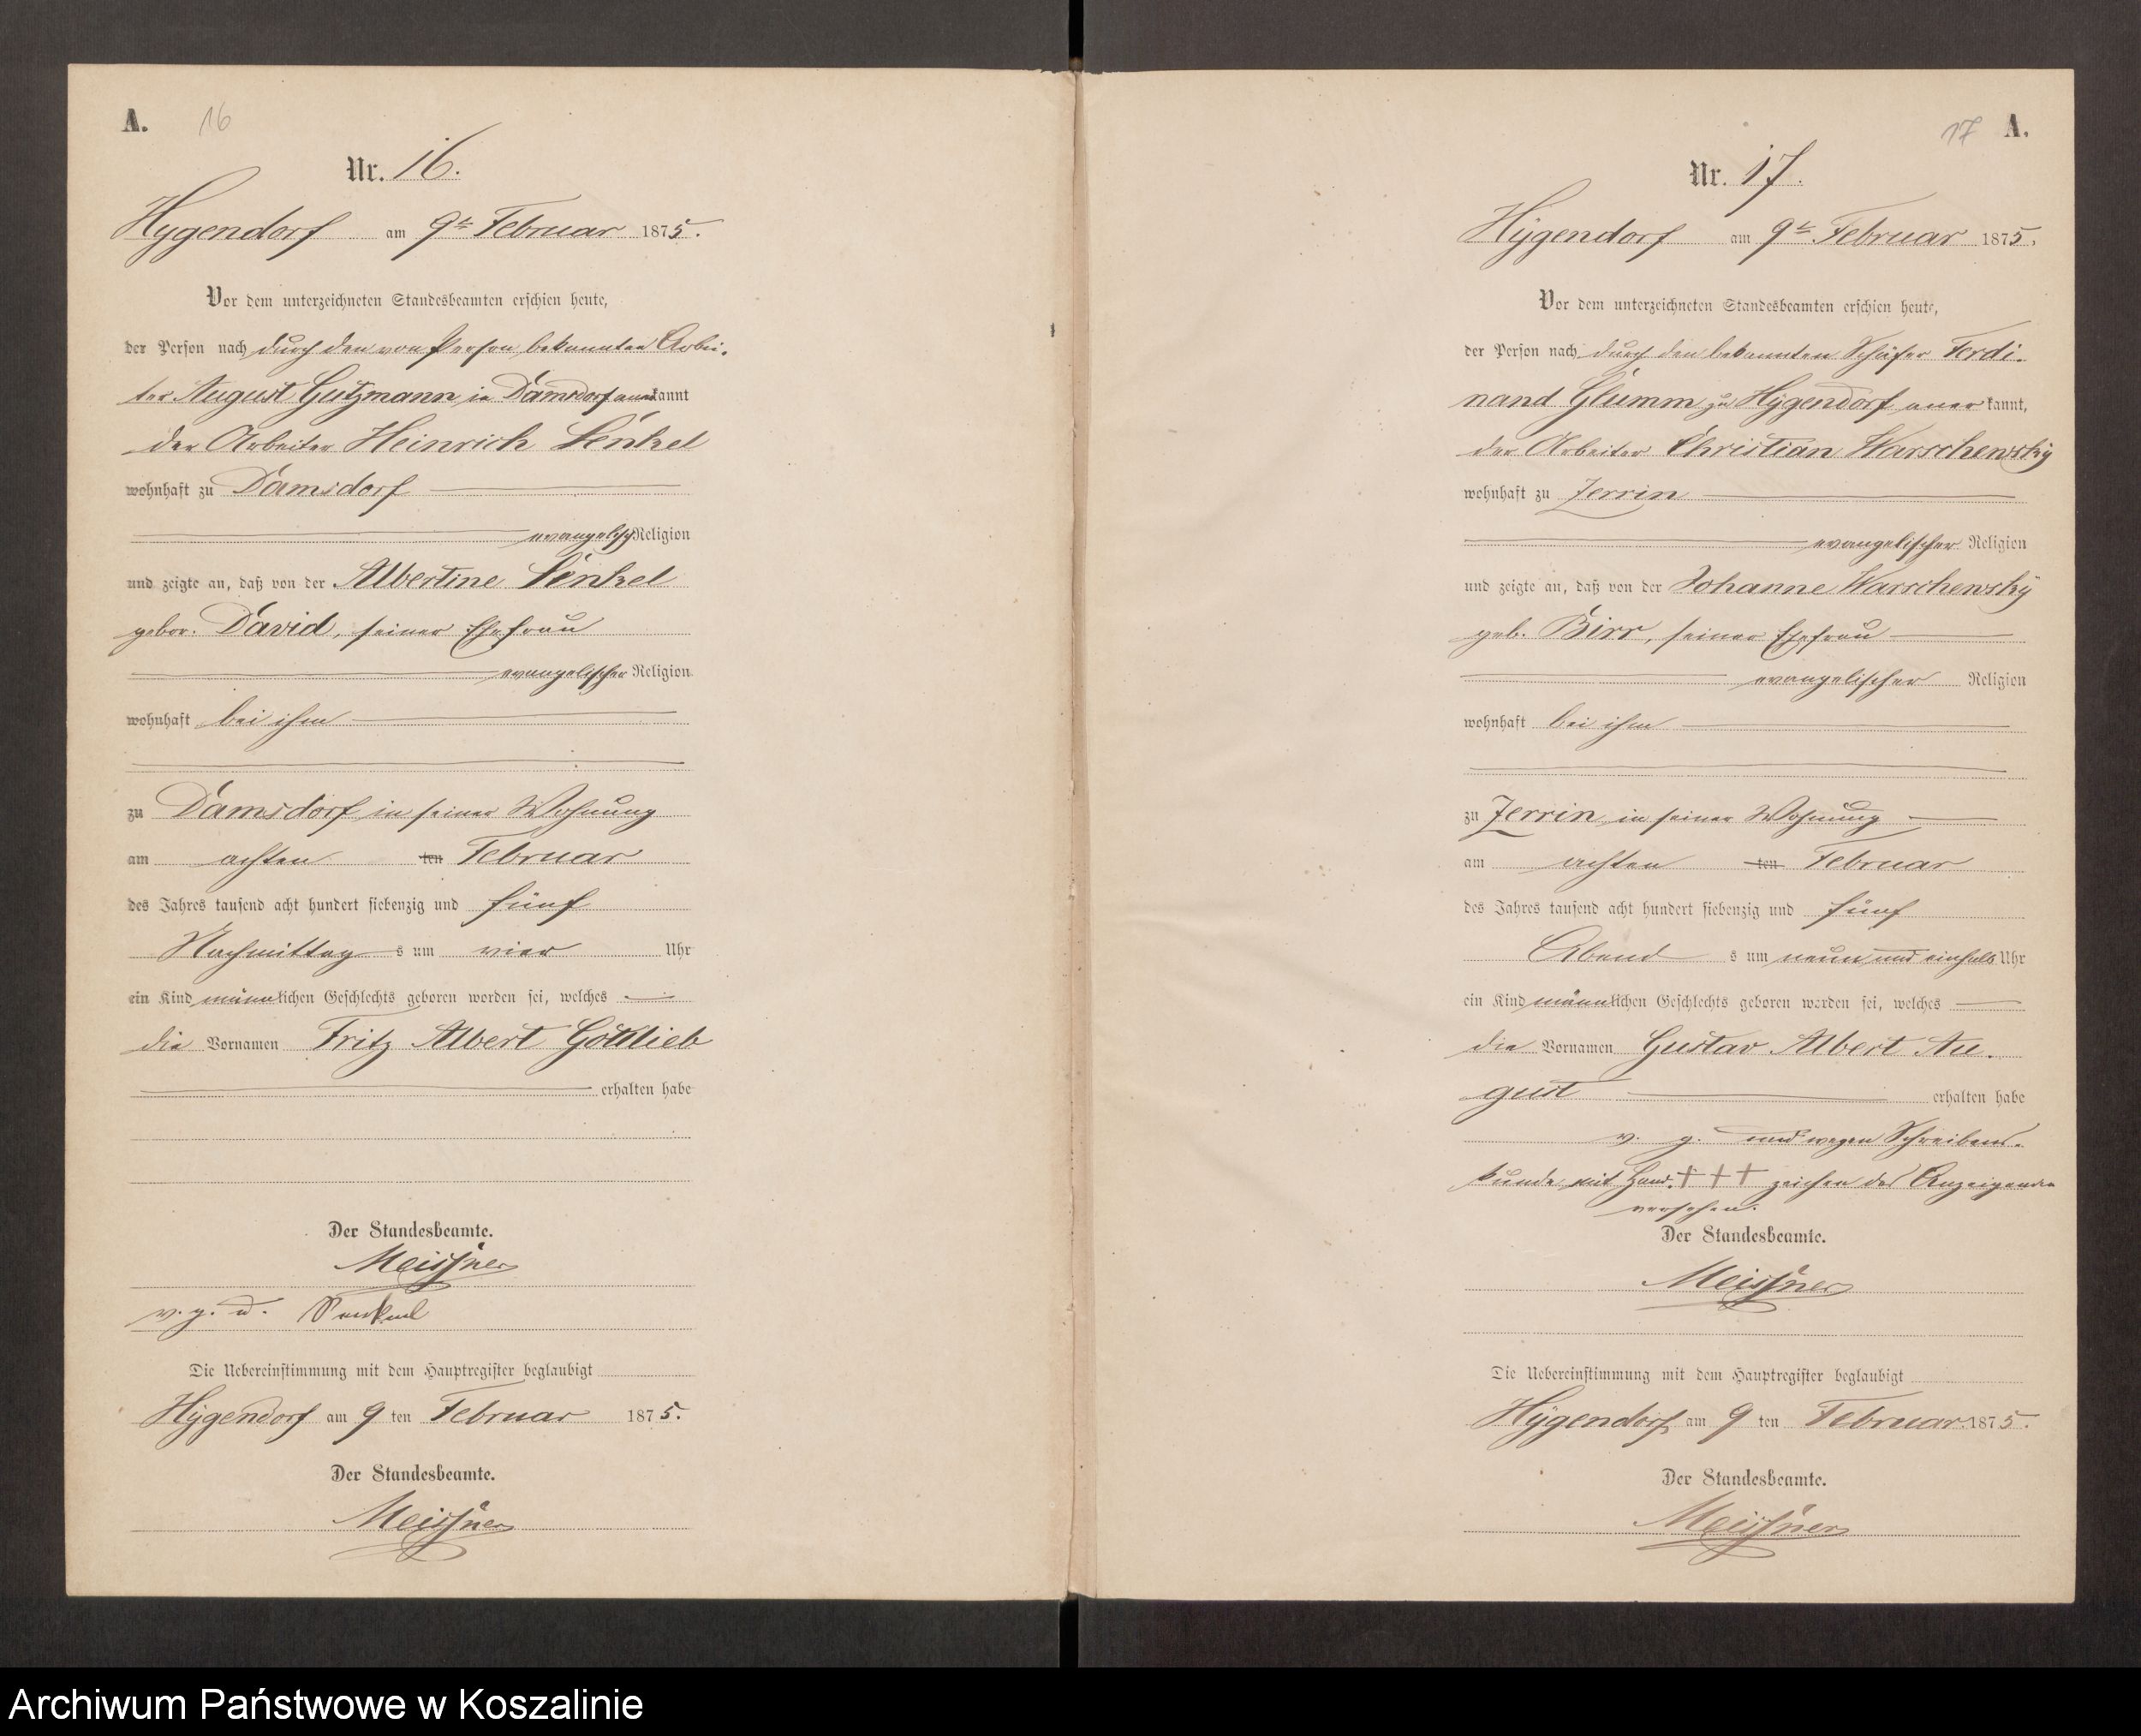 A. 16
Nr. 16.
Hygendorf am 9te Februar 1875.
Vor dem unterzeichneten Standesbeamten erschien heute,
der Person nach durch den von Person bekannten Arbei-
ter August Gutzmann in Damsdorf anerkannt
der Arbeiter Heinrich Senkel
wohnhaft zu Damsdorf
evangelisch Religion
und zeigte an, daß von der Albertine Senkel
gebor. David, seiner Ehefrau
evangelischer Religion
wohnhaft bei ihm
zu Damsdorf in seiner Wohnung
am achten ten Februar
des Jahres tausend acht hundert siebenzig und fünf
Nachmittag s um vier Uhr
ein Kind männlichen Geschlechts geboren worden sei, welches
die Vornamen Fritz Albert Gottlieb
erhalten habe
Der Standesbeamte.
Meissner
v. g. u. Senkel
Die Uebereinstimmung mit dem Hauptregister beglaubigt
Hygendorf am 9 ten Februar 1875.
Der Standesbeamte.
Meissner
17 A.
Nr. 17.
Hygendorf am 9te Februar 1875.
Vor dem unterzeichneten Standesbeamten erschien heute,
der Person nach durch den bekannten Schäfer Ferdi-
nand Glumm zu Hygendorf anerkannt,
der Arbeiter Christian Warschewsky
wohnhaft zu Zerrin
evangelischer Religion
und zeigte an, daß von der Johanne Warschewsky
geb. Birr, seiner Ehefrau
evangelischer Religion
wohnhaft bei ihm
zu Zerrin in seiner Wohnung
am achten ten Februar
des Jahres tausend acht hundert siebenzig und fünf
Abend s um neun und einhalb Uhr
ein Kind männlichen Geschlechts geboren worden sei, welches
die Vornamen Gustav Albert Au-
gust erhalten habe
v. g. und wegen Schreibens-
kunde mit Hand- + + + zeichen des Anzeigenden
versehen.
Der Standesbeamte.
Meissner
Die Uebereinstimmung mit dem Hauptregister beglaubigt
Hygendorf am 9 ten Februar 1875.
Der Standesbeamte.
Meissner
Archiwum Państwowe w Koszalinie